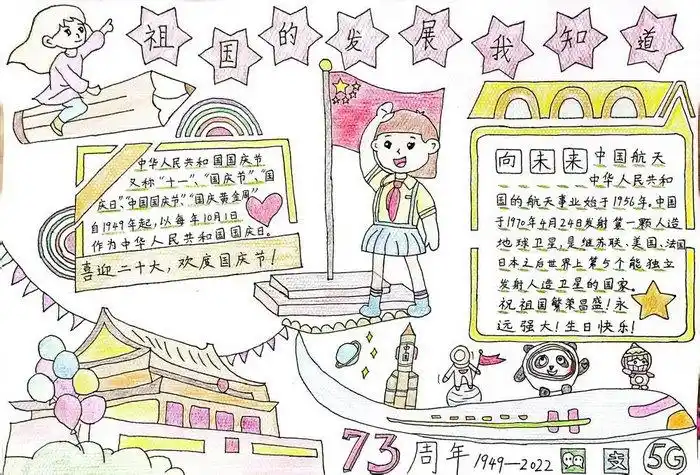 祖国的发展我知道
中华人民共和国国庆节
又称“十一”、“国庆节”、“国
庆日”、“中国国庆节”、“国庆黄金周”
自1949年起,以每年10月1日
作为中华人民共和国国庆日。
喜迎二十大,欢度国庆节!
向未来 中国航天
中华人民共和
国的航天事业始于1956年。中国
于1970年4月24日发射第一颗人造
地球卫星,是继苏联、美国、法国
日本之后世界上第5个能独立
发射人造卫星的国家。
祝祖国繁荣昌盛!永
远强大!生日快乐!
中国
73周年 1949—2022 支 5G